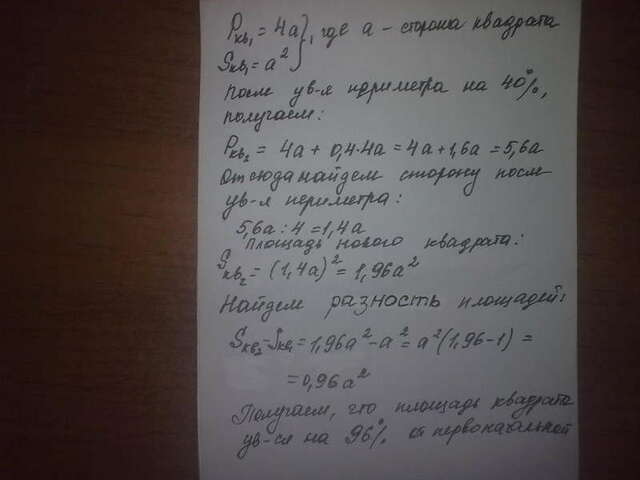 Pкв₁ = 4a }, где a – сторона квадрата
Sкв₁ = a²
После ув-я периметра на 40%,
получаем:
Pкв₂ = 4a + 0,4·4a = 4a + 1,6a = 5,6a
Отсюда найдем сторону после
ув-я периметра:
5,6a : 4 = 1,4a
Площадь нового квадрата:
Sкв₂ = (1,4a)² = 1,96a²
Найдем разность площадей:
Sкв₂ – Sкв₁ = 1,96a² – a² = a²(1,96 – 1) =
= 0,96a²
Получаем, что площадь квадрата
ув-ся на 96% от первоначальной